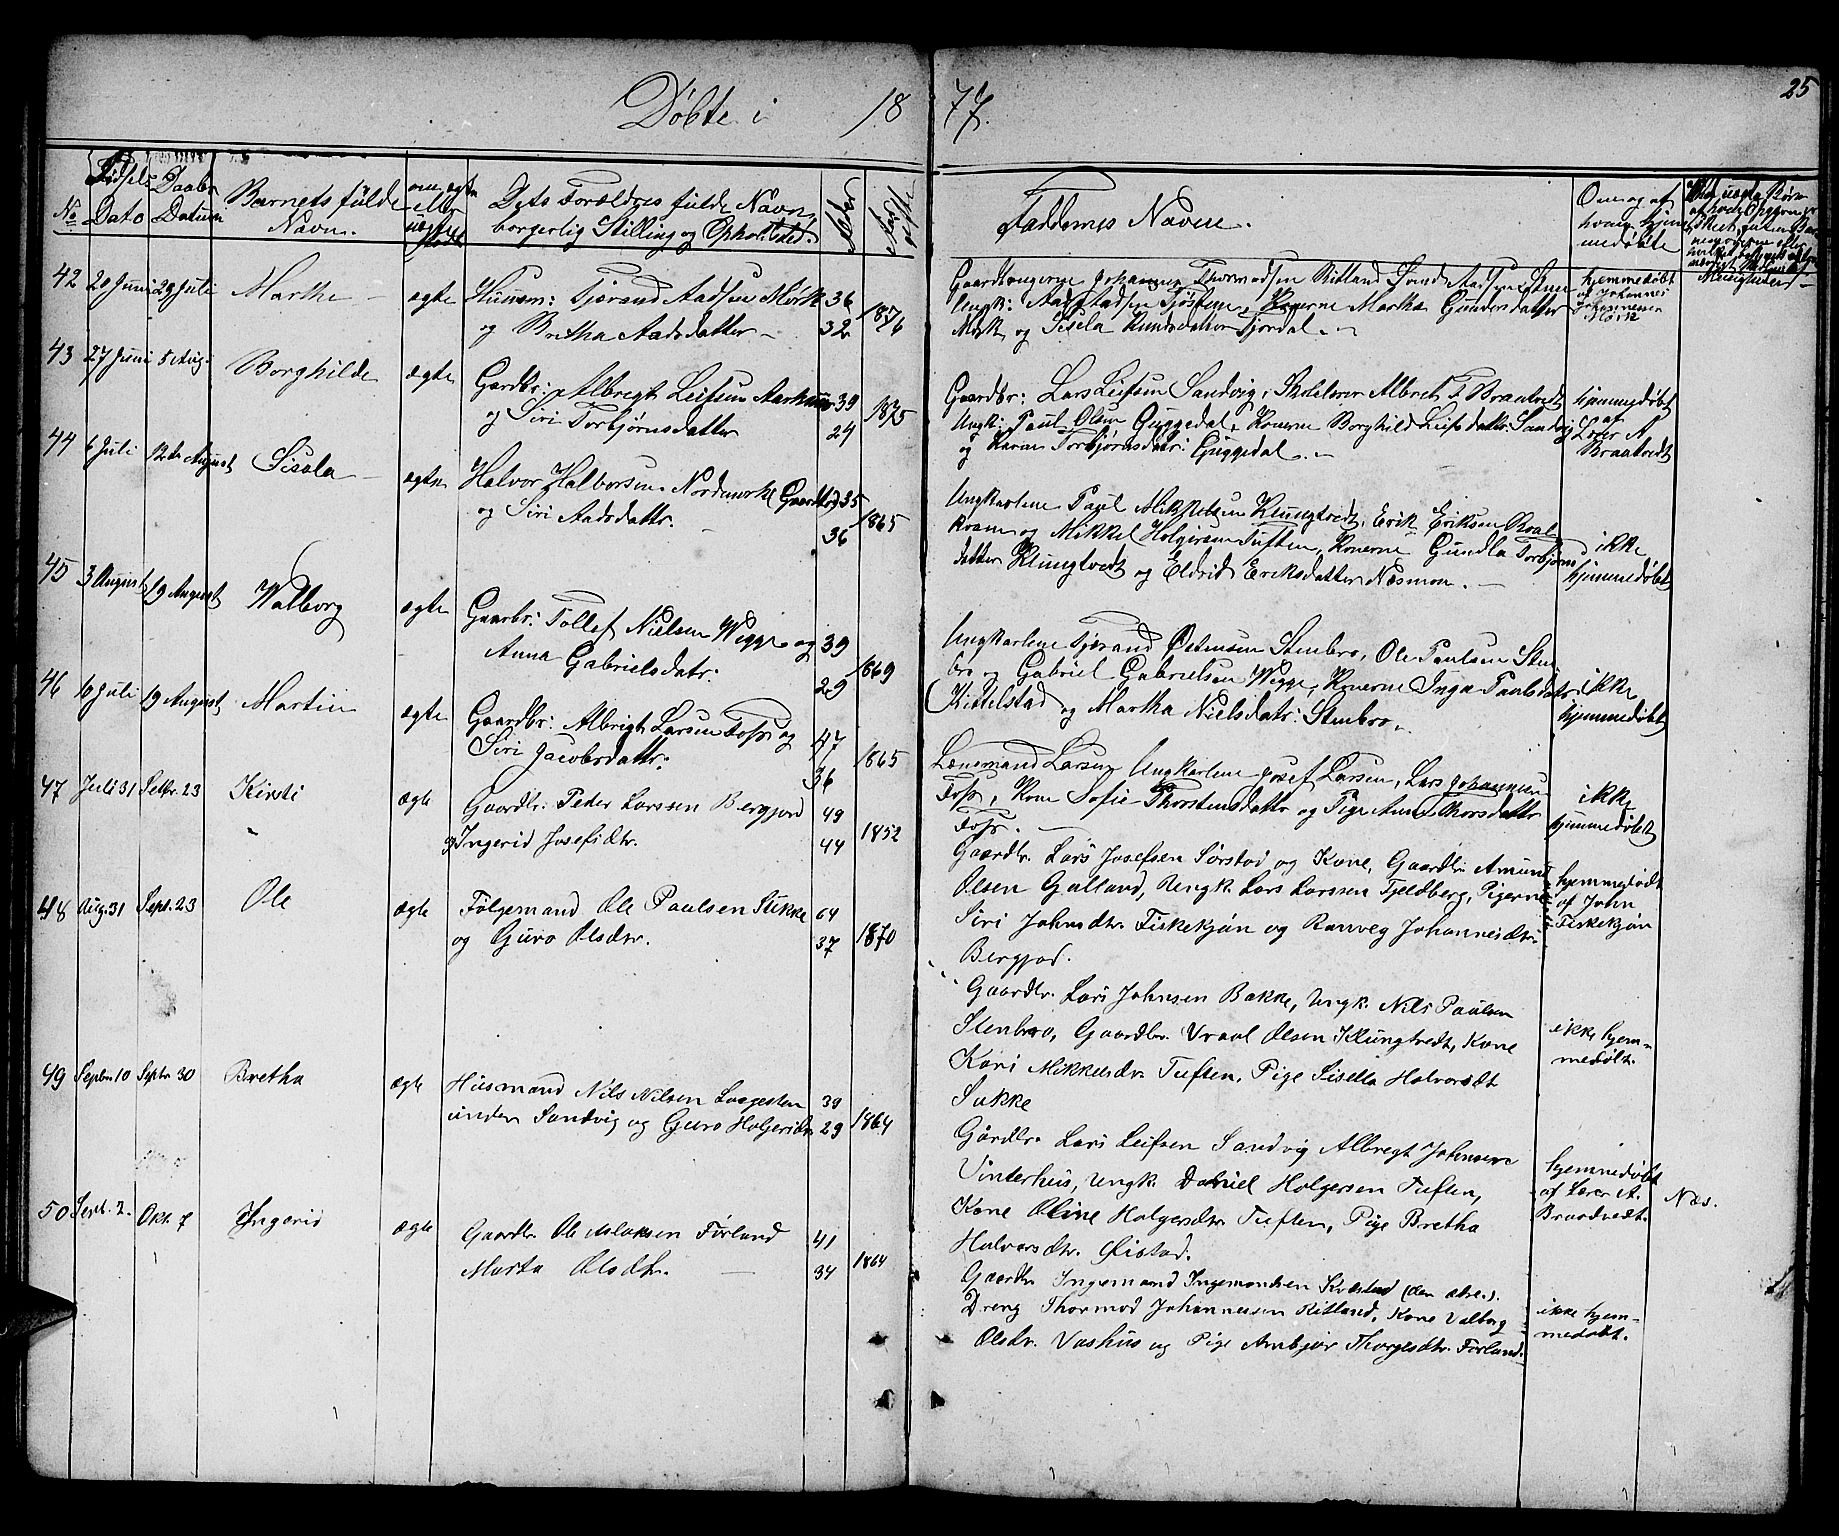 Døbte i 1877.
25
No
Fødsels Dato
Daabs Datum
Barnets fulde Navn.
om ægte eller uægte født
Dets Forældres fulde Navn, borgerlig Stilling og Opholdsted.
Alder
Faddernes Navne.
Om og af hvem hjemmedøbte
42
20 Juni
29 Juli
Marthe
ægte
Huusm: Tjerand Aadsen Mørk
og Bretha Aadsdatter
36
32
1876
Johannes Thormodsen Ritland
Mørk og Sisela Knutsdatter Fjordal.
hjemmedøbt
af Johannes
Johannesen
Mørk
43
27 Juni
5 Aug.
Borghilde
ægte
Gardbr: Albregt Leifsen Aarhuus
og Siri Torbjørnsdatter
39
24
1875
Gaardbr: Lars Leifsen Sandvig, Skolelærer Albret T. Braatvedt
Ungk: Paul Olsen Guggedal, Konerne Borghild Leifsdattr: Sandvig
og Karen Torbjørnsdatr: Guggedal.
hjemmedøbt
af
Lærer A
Braatvedt
44
6 Juli
12te August
Sisela
ægte
Halvor Halvorsen Nordmorke Gaardbr
og Siri Aadsdattr.
35
36
1865
Ungkarlene Paul Mikkelsen Klungtvedt, Erik Eriksen Roal
kvam og Mikkel Holgersen Tuften, Konerne Gundla Torbjørns
datter Klungtvedt og Eldrid Eriksdatter Næsmon.
ikke
hjemmedøbt
45
3 August
19 August
Walborg
ægte
Gaarbr: Tollef Nielsen Wegge og
Anna Gabrielsdatr:
39
29
1869
Ungkarlene Tjerand Østensen Stenbro, Ole Paulsen Sten
bro og Gabriel Gabrielsen Wegge, Konerne Inga Paulsdatr
Kittelstad og Martha Nielsdatr: Stenbro.
ikke
hjemmedøbt
46
10 Juli
19 August
Martin
ægte
Gaardbr: Albrigt Larsen Foss og
Siri Jacobsdattr:
47
36
1865
Lensmand Larsen Ungkarlene Josef Larsen, Lars Johannesen
Foss, Kone Sofie Thorstensdattr og Pige Anna Thorsdattr
Foss.
ikke
hjemmedøbt
47
Juli 31
Septbr. 23
Kirsti
ægte
Gaardbr. Peder Larssen Bergjord
og Ingerid Josefsdtr.
49
44
1852
Gaardbr. Lars Josefsen Sørstad og Kone, Gaardbr. Amund
Olsen Galland, Ungk. Lars Larssen Fjeldberg, Pigerne
Siri Johnsdtr. Fiskekjøn og Ranveg Johannesdtr.
Bergjord.
hjemmedøbt
af John
Fiskekjøn
48
Aug. 31
Sept. 23
Ole
ægte
Følgemand Ole Paulsen Sukke
og Guro Olsdtr.
64
37
1870
Gaardbr. Lars Johnsen Bakke, Ungk. Nils Paulsen
Stenbro, Gaardbr. Vraal Olsen Klungtvedt, Kone
Kari Mikkelsdtr. Tuften, Pige Sisella Halvorsdt
Sukke
ikke hjem-
medøbt.
49
Septbr. 10
Septbr. 30
Bretha
ægte
Husmand Nils Nilsen Laagesten
under Sandvig og Guro Holgersdtr
39
29
1864
Gårdbr. Lars Leifsen Sandvig Albregt Johnsen
Vinterhus, Ungk. Daniel Holgersen Tuften,
Kone Oline Holgersdtr. Tuften, Pige Bretha
Halvorsdtr. Øistad.
hjemmedøbt
af Lærer A.
Braadvedt.
Næs.
50
Sept. 2.
Okt. 7
Ingerid
ægte
Gaardbr. Ole Aslaksen Førland
Marta Olsdtr.
41
34
1864
Gaardbr Ingemand Ingemandsen Kvæstad (den ældre).
Dreng Thormod Johannessen Ritland, Kone Valborg
Olsdtr. Vashus og Pige Anbjør Thorgesdtr. Førland.
ikke hjem-
medøbt.